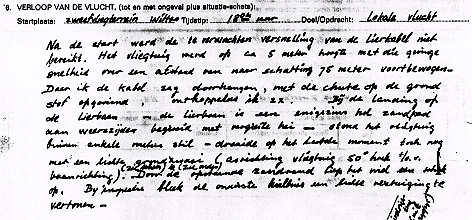 "6. VERLOOP VAN DE VLUCHT, (tot en met ongeval plus situatie-schets),
Startplaats: zweefvliegterrein Tijdstip: uur Doel/Opdracht: Lokale vlucht
Na de start werd de te verwachten versnelling van de lierkabel niet
bereikt. Het vliegtuig werd op ca 5 meter hoogte met die geringe
snelheid over een afstand van naar schatting 75 meter voortbewogen.
Daar ik de kabel zag doorhangen, met die chute op de grond
stof opgooiend, ontkoppelde ik zz. Bij de landing op
de lierbaan - de lierbaan is een enigszins hol zandpad
aan weerszijden begroeid met hei - stond het vliegtuig
binnen enkele meters stil - draaide op het laatste moment toch nog
met een lichte (asrichting vliegtuig 50° hoek t.o.v.
baanrichting). Door de opstaande zandrand liep het wiel een
op. Bij inspectie bleek de onderste kielhuis een lichte
vertonen -